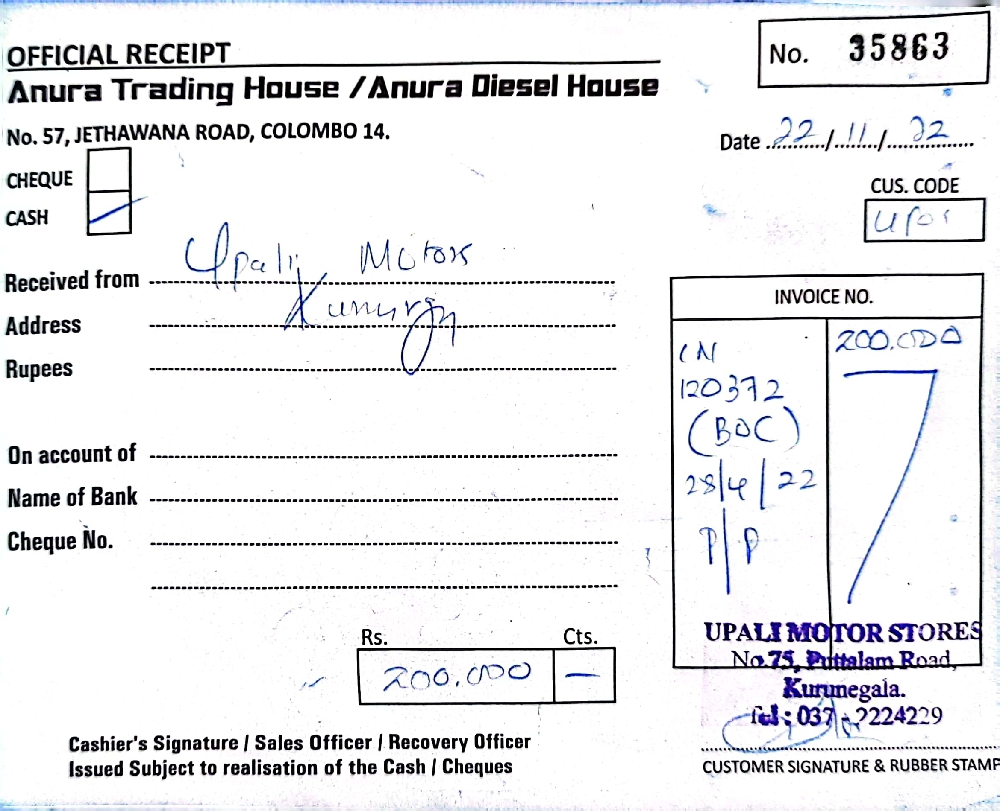 OFFICIAL RECEIPT
No. 35863
Anura Trading House / Anura Diesel House
No. 57, JETHAWANA ROAD, COLOMBO 14.
Date 22/11/22
CHEQUE
CASH
CUS. CODE
Received from Upali Motors
Address
Rupees
On account of
Name of Bank
Cheque No.
INVOICE NO.
200.000
120372
(BOC)
28/4/22
P/P
Rs. Cts.
200.000 —
UPALI MOTOR STORES
No.75, Puttalam Road,
Kurunegala.
Tel : 037 - 2224229
Cashier's Signature / Sales Officer / Recovery Officer
Issued Subject to realisation of the Cash / Cheques
CUSTOMER SIGNATURE & RUBBER STAMP